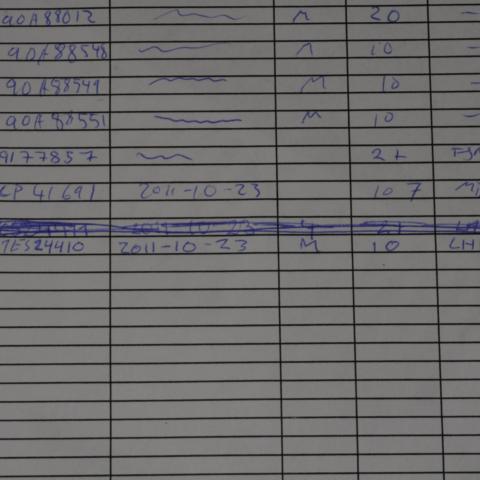 90A88012 M 20 -
90A88548 M 10 -
90A88549 M 10 -
90A88551 M 10 -
9177857 21
CP41691 2011-10-23 10 7
2011-10-23 21
7ES24410 2011-10-23 M 10 LH